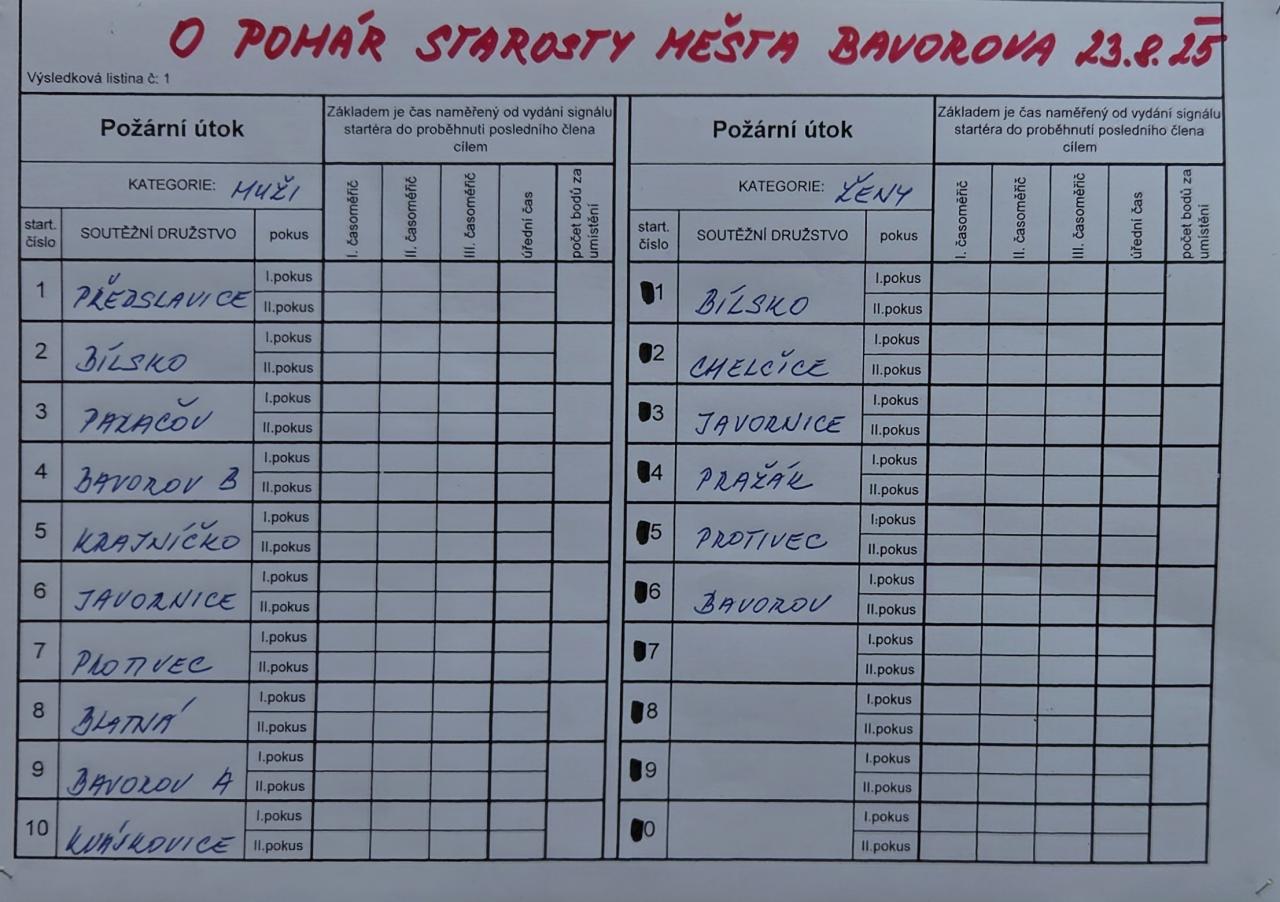 O POHÁR STAROSTY MĚSTA BAVOROVA 23.8.25
Výsledková listina č: 1
Požární útok
Základem je čas naměřený od vydání signálu
startéra do proběhnutí posledního člena
cílem
KATEGORIE: MUŽI
I. časoměřič
II. časoměřič
III. časoměřič
úřední čas
počet bodů za
umístění
start.
číslo
SOUTĚŽNÍ DRUŽSTVO
pokus
1 PŘEDSLAVICE I.pokus
II.pokus
2 BÍLSKO I.pokus
II.pokus
3 PARAČOV I.pokus
II.pokus
4 BAVOROV B I.pokus
II.pokus
5 KRAJNÍČKO I.pokus
II.pokus
6 JAVORNICE I.pokus
II.pokus
7 PROTIVEC I.pokus
II.pokus
8 BLATNÁ I.pokus
II.pokus
9 BAVOROV A I.pokus
II.pokus
10 KVÁSKOVICE I.pokus
II.pokus
Požární útok
Základem je čas naměřený od vydání signálu
startéra do proběhnutí posledního člena
cílem
KATEGORIE: ŽENY
I. časoměřič
II. časoměřič
III. časoměřič
úřední čas
počet bodů za
umístění
start.
číslo
SOUTĚŽNÍ DRUŽSTVO
pokus
1 BÍLSKO I.pokus
II.pokus
2 CHELČICE I.pokus
II.pokus
3 JAVORNICE I.pokus
II.pokus
4 PRAŽÁK I.pokus
II.pokus
5 PROTIVEC I.pokus
II.pokus
6 BAVOROV I.pokus
II.pokus
7 I.pokus
II.pokus
8 I.pokus
II.pokus
9 I.pokus
II.pokus
0 I.pokus
II.pokus